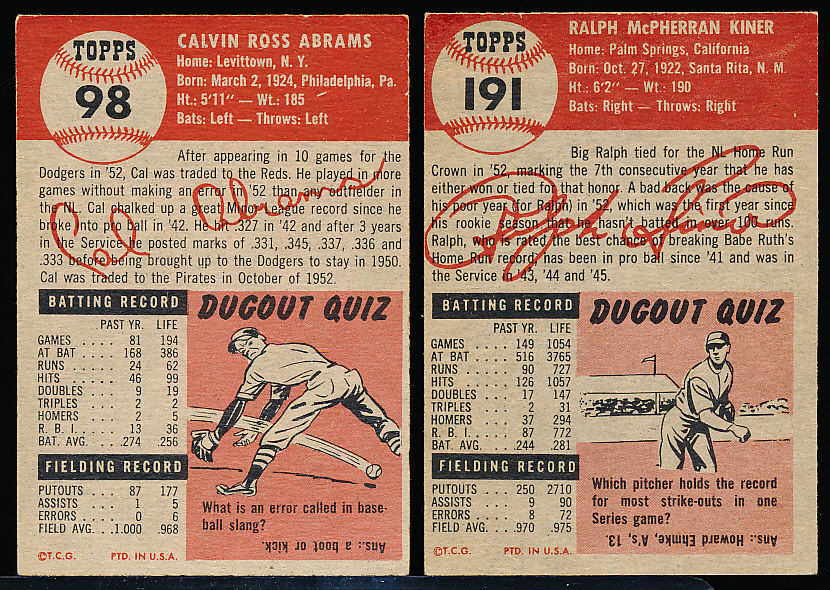 TOPPS
98
CALVIN ROSS ABRAMS
Home: Levittown, N. Y.
Born: March 2, 1924, Philadelphia, Pa.
Ht.: 5'11" — Wt.: 185
Bats: Left — Throws: Left
After appearing in 10 games for the
Dodgers in '52, Cal was traded to the Reds. He played more
games without making an error in '52 than any outfielder in
the NL. Cal chalked up a great Minor League record since he
broke into pro ball in '42. He hit .327 in '42 and after 3 years
in the Service he posted marks of .331, .345, .337, .336 and
.333 before being brought up to the Dodgers to stay in 1950.
Cal was traded to the Pirates in October of 1952.
Cal Abrams
BATTING RECORD
PAST YR. LIFE
GAMES . . . . . 81 194
AT BAT . . . . 168 386
RUNS . . . . . 24 62
HITS . . . . . 46 99
DOUBLES . . . 9 19
TRIPLES . . . 2 2
HOMERS . . . 2 5
R. B. I. . . . . 13 36
BAT. AVG. . . . .274 .256
FIELDING RECORD
PUTOUTS . . . 87 177
ASSISTS . . . 1 5
ERRORS . . . 0 6
FIELD AVG. . . 1.000 .968
©T.C.G. PTD. IN U.S.A.
DUGOUT QUIZ
What is an error called in base-
ball slang?
Ans.: a boot or kick.
TOPPS
191
RALPH McPHERRAN KINER
Home: Palm Springs, California
Born: Oct. 27, 1922, Santa Rita, N. M.
Ht.: 6'2" — Wt.: 190
Bats: Right — Throws: Right
Big Ralph tied for the NL Home Run
Crown in '52, marking the 7th consecutive year that he has
either won or tied for that honor. A bad back was the cause of
his poor year (for Ralph) in '52, which was the first year since
his rookie season that he hasn't batted in over 100 runs.
Ralph, who is rated the best chance of breaking Babe Ruth's
Home Run record, has been in pro ball since '41 and was in
the Service in '43, '44 and '45.
Ralph Kiner
BATTING RECORD
PAST YR. LIFE
GAMES . . . . 149 1054
AT BAT . . . . 516 3765
RUNS . . . . . 90 727
HITS . . . . . 126 1057
DOUBLES . . . 17 147
TRIPLES . . . 2 31
HOMERS . . . 37 294
R. B. I. . . . . 87 772
BAT. AVG. . . . .244 .281
FIELDING RECORD
PUTOUTS . . . 250 2710
ASSISTS . . . 9 90
ERRORS . . . 8 72
FIELD AVG. . . .970 .975
©T.C.G. PTD. IN U.S.A.
DUGOUT QUIZ
Which pitcher holds the record
for most strike-outs in one
Series game?
Ans.: Howard Ehmke, A's, 13.